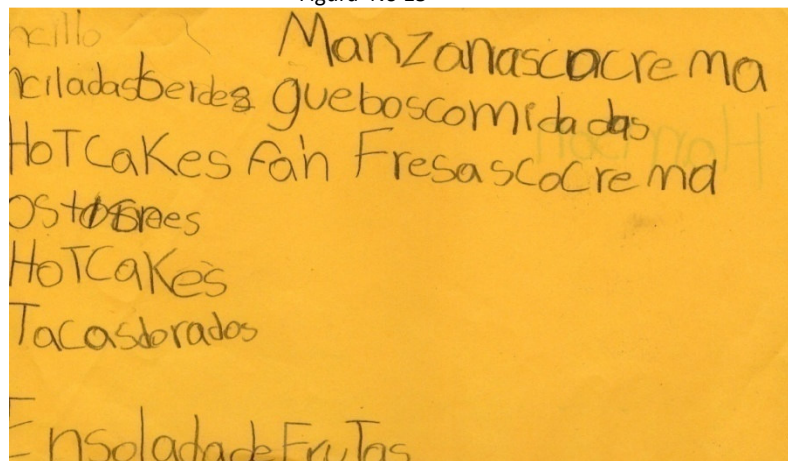 Figura No
ncillo Manzanascocrema
nciladasberdes gueboscomidadas
HoTCaKes fan Fresascocrema
HoTCaKes
Tacasdorados
EnsaladadeFruTas